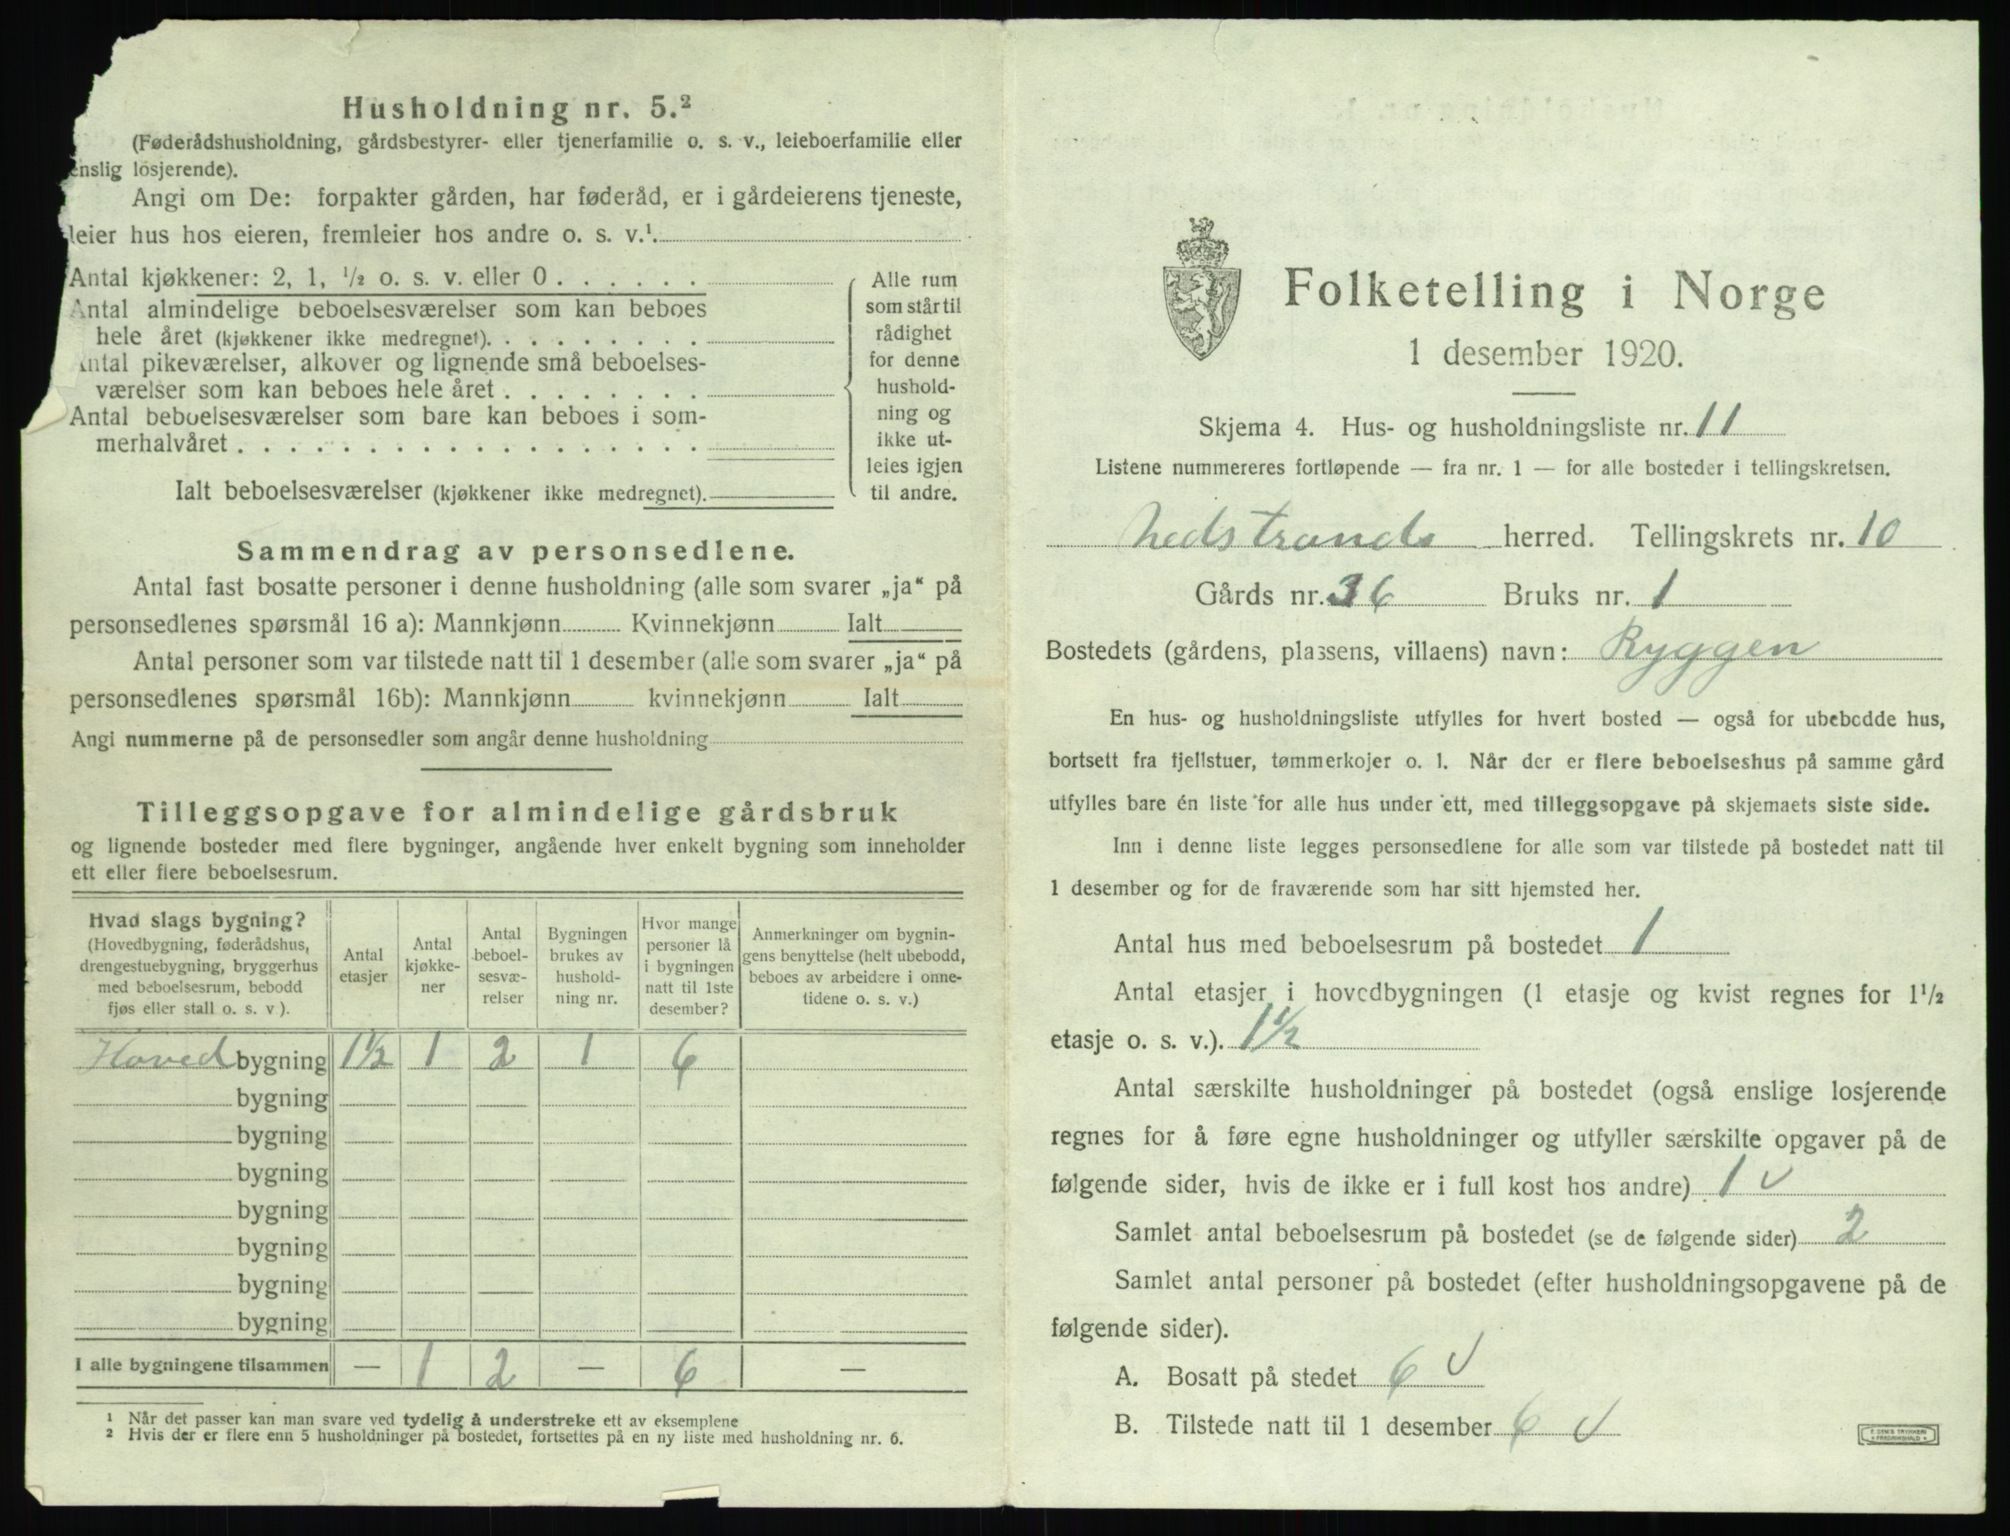 Husholdning nr. 5.²
(Føderådshusholdning, gårdsbestyrer- eller tjenerfamilie o. s. v., leieboerfamilie eller
enslig losjerende).
Angi om De: forpakter gården, har føderåd, er i gårdeierens tjeneste,
leier hus hos eieren, fremleier hos andre o. s. v.¹
Antal kjøkkener: 2, 1, ½ o. s. v. eller 0
Antal almindelige beboelsesværelser som kan beboes
hele året (kjøkkener ikke medregnet)
Antal pikeværelser, alkover og lignende små beboelses-
værelser som kan beboes hele året
Antal beboelsesværelser som bare kan beboes i som-
merhalvåret
Ialt beboelsesværelser (kjøkkener ikke medregnet)
Alle rum
som står til
rådighet
for denne
hushold-
ning og
ikke ut-
leies igjen
til andre.
Sammendrag av personsedlene.
Antal fast bosatte personer i denne husholdning (alle som svarer „ja“ på
personsedlenes spørsmål 16 a): Mannkjønn Kvinnekjønn Ialt
Antal personer som var tilstede natt til 1 desember (alle som svarer „ja“ på
personsedlenes spørsmål 16b): Mannkjønn kvinnekjønn Ialt
Angi nummerne på de personsedler som angår denne husholdning
Tilleggsopgave for almindelige gårdsbruk
og lignende bosteder med flere bygninger, angående hver enkelt bygning som inneholder
ett eller flere beboelsesrum.
Hvad slags bygning?
(Hovedbygning, føderådshus,
drengestuebygning, bryggerhus
med beboelsesrum, bebodd
fjøs eller stall o. s. v ).
Antal
etasjer
Antal
kjøkke-
ner
Antal
beboel-
sesvæ-
relser
Bygningen
brukes av
hushold-
ning nr.
Hvor mange
personer lå
i bygningen
natt til 1ste
desember?
Anmerkninger om bygnin-
gens benyttelse (helt ubebodd,
beboes av arbeidere i onne-
tidene o. s. v.)
Hoved bygning 1½ 1 2 1 6
bygning
bygning
bygning
bygning
bygning
bygning
bygning
I alle bygningene tilsammen — 1 2 — 6 —
¹ Når det passer kan man svare ved tydelig å understreke ett av eksemplene
² Hvis der er flere enn 5 husholdninger på bostedet, fortsettes på en ny liste med husholdning nr. 6.
Folketelling i Norge
1 desember 1920.
Skjema 4. Hus- og husholdningsliste nr. 11
Listene nummereres fortløpende — fra nr. 1 — for alle bosteder i tellingskretsen.
Nedstrands herred. Tellingskrets nr. 10
Gårds nr. 36 Bruks nr. 1
Bostedets (gårdens, plassens, villaens) navn: Ryggen
En hus- og husholdningsliste utfylles for hvert bosted — også for ubebodde hus,
bortsett fra fjellstuer, tømmerkojer o. l. Når der er flere beboelseshus på samme gård
utfylles bare én liste for alle hus under ett, med tilleggsopgave på skjemaets siste side.
Inn i denne liste legges personsedlene for alle som var tilstede på bostedet natt til
1 desember og for de fraværende som har sitt hjemsted her.
Antal hus med beboelsesrum på bostedet 1
Antal etasjer i hovedbygningen (1 etasje og kvist regnes for 1½
etasje o. s. v.). 1½
Antal særskilte husholdninger på bostedet (også enslige losjerende
regnes for å føre egne husholdninger og utfyller særskilte opgaver på de
følgende sider, hvis de ikke er i full kost hos andre) 1 v
Samlet antal beboelsesrum på bostedet (se de følgende sider) 2
Samlet antal personer på bostedet (efter husholdningsopgavene på de
følgende sider).
A. Bosatt på stedet 6 v
B. Tilstede natt til 1 desember 6 v
E. SEM'S TRYKKERI
FREDRIKSHALD